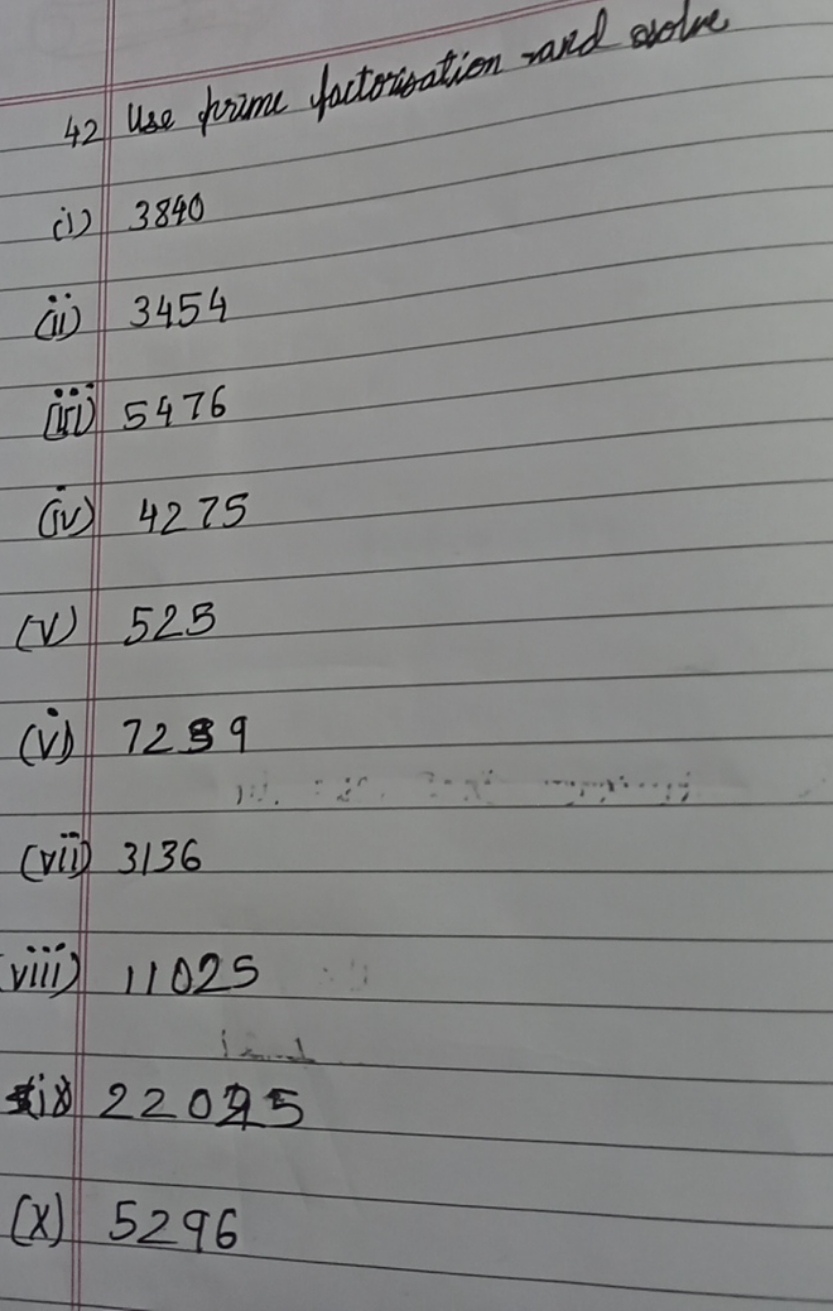 42 Use prime factorisation and solve
(i) 3840
(ii) 3454
(iii) 5476
(iv) 4275
(v) 525
(vi) 7239
(vii) 3136
(viii) 11025
(ix)
(x) 5296